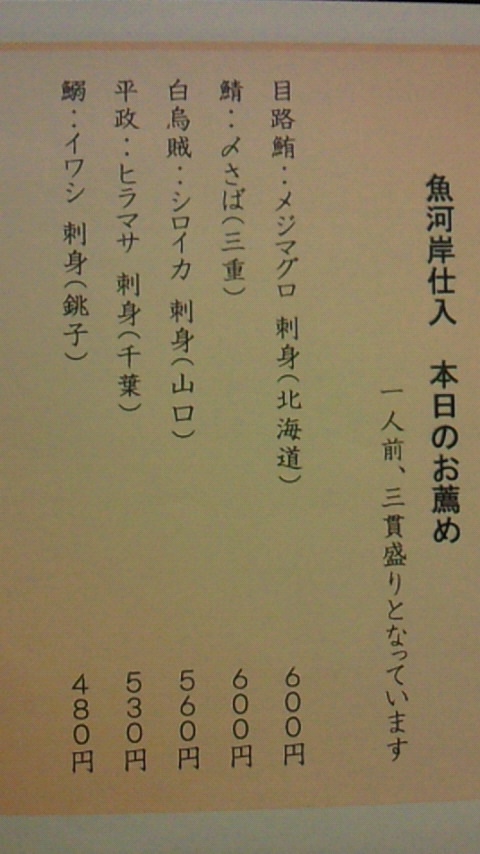 魚河岸仕入　本日のお薦め
一人前、三貫盛りとなっています
目路鮪：メジマグロ 刺身(北海道) 600円
鯖：〆さば(三重) 600円
白烏賊：シロイカ 刺身(山口) 560円
平政：ヒラマサ 刺身(千葉) 530円
鰯：イワシ 刺身(銚子) 480円